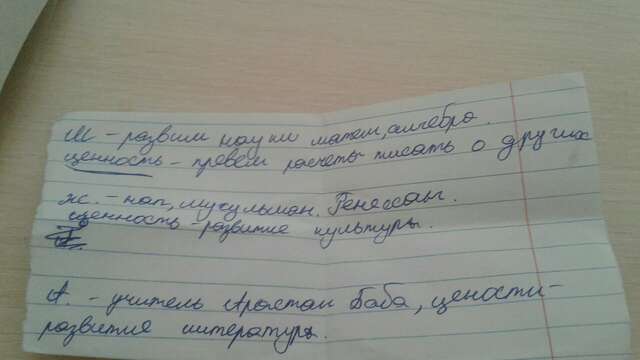 М - развит науки матем, алгебра.
ценность - превем расчеты писать о других
ж. - нап, мусульман. Генессаны.
ценность - развитие культуры.
А. - учитель Арыстан Баба, цености-
развитие литературы.